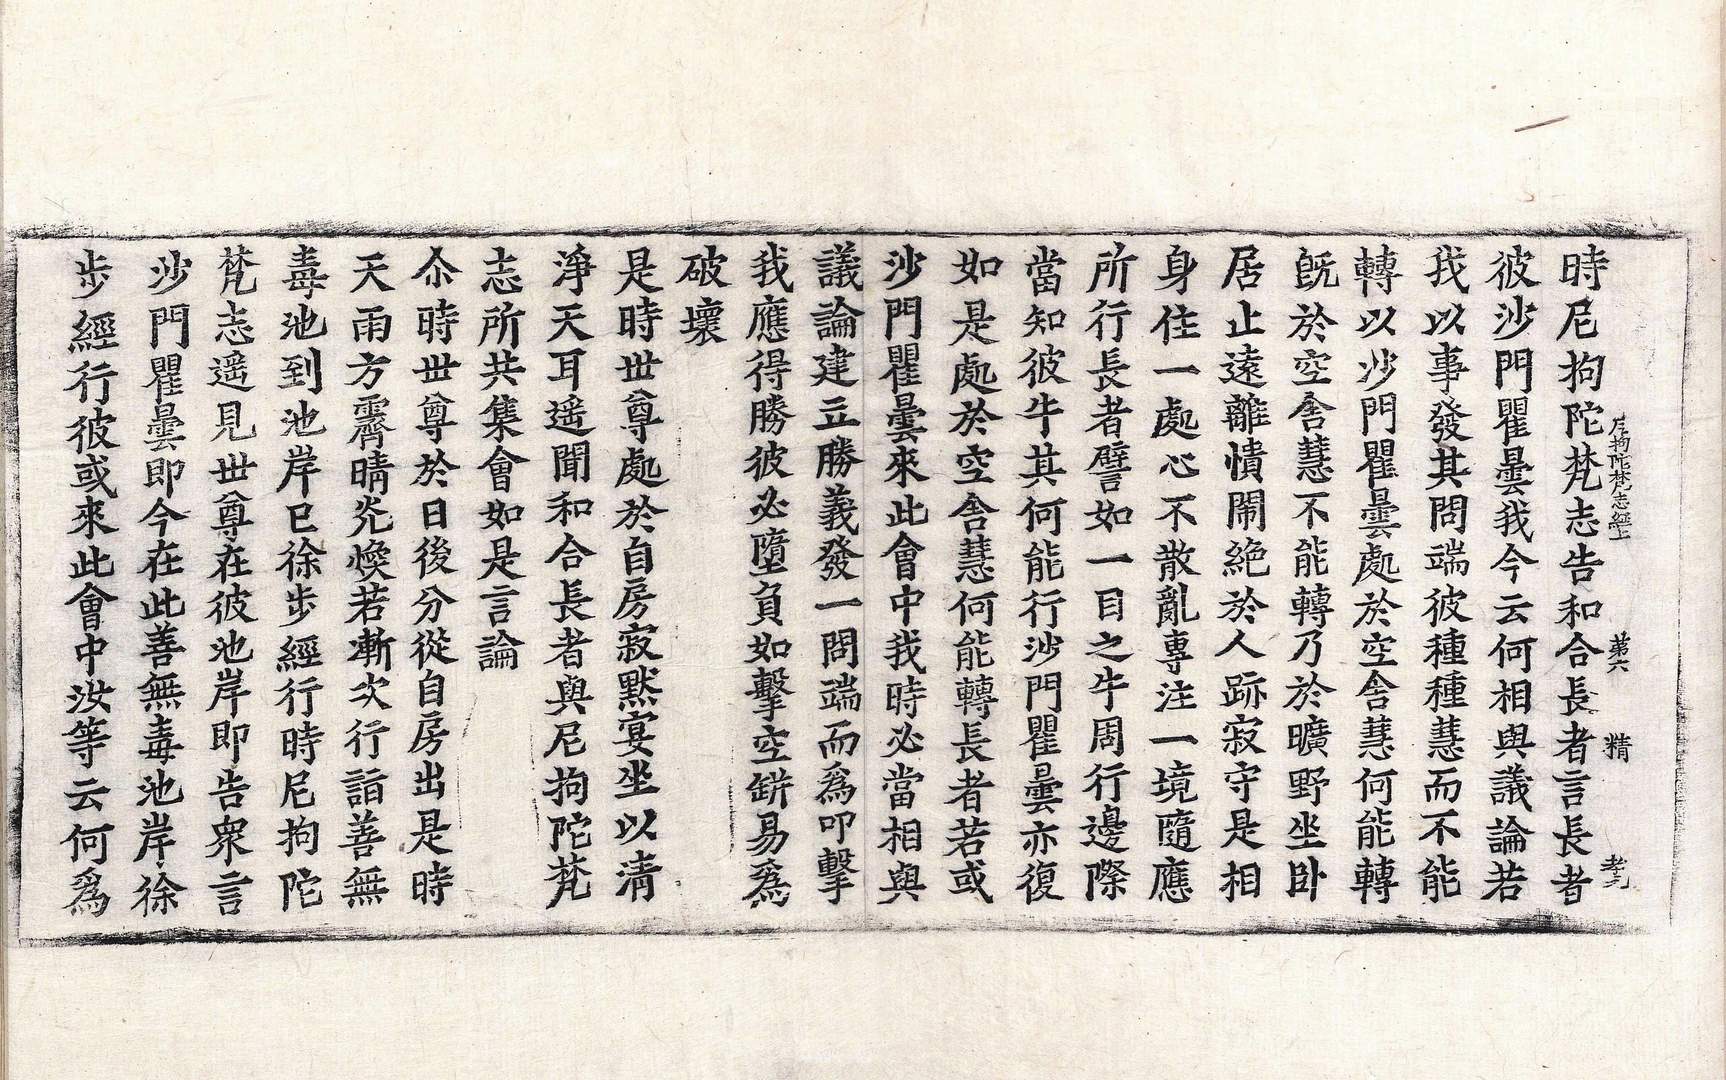 尼拘陀梵志經上 第六 精
時尼拘陀梵志告和合長者言長者
彼沙門瞿曇我今云何相與議論若
我以事發其問端彼種種慧而不能
轉以沙門瞿曇處於空舍慧何能轉
旣於空舍慧不能轉乃於曠野坐卧
居止遠離憒閙絶於人跡寂守是相
身住一處心不散亂專注一境隨應
所行長者譬如一目之牛周行邊際
當知彼牛其何能行沙門瞿曇亦復
如是處於空舍慧何能轉長者若或
沙門瞿曇來此會中我時必當相與
議論建立勝義發一問端而爲叩擊
我應得勝彼必墮負如擊空缾易爲
破壞
是時世尊處於自房寂默宴坐以清
淨天耳遥聞和合長者與尼拘陀梵
志所共集會如是言論
尒時世尊於日後分從自房出是時
天雨方霽晴光煥若漸次行詣善無
毒池到池岸已徐步經行時尼拘陀
梵志遥見世尊在彼池岸即告衆言
沙門瞿曇即今在此善無毒池岸徐
步經行彼或來此會中汝等云何爲